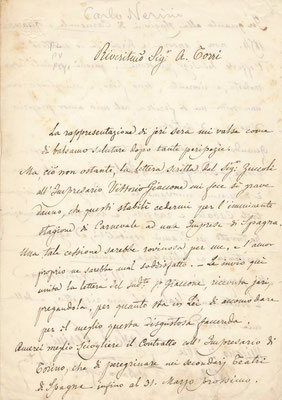 Carlo Negrini
Riveritmo Sigr A. Torri
La rappresentazione di jeri sera mi valse come
di balsamo salutare dopo tante peripezie.
Ma ciò non ostante, la lettera scritta dal Sigr Zuccoli
all'Impresario Vittorio Giaccone mi fece sì grave
danno, che questi stabilì cedermi per l'imminente
stagione di Carnevale ad una Impresa di Spagna.
Una tale cessione sarebbe rovinosa per me, e l'amor
proprio ne sarebbe mal soddisfatto. – Le invio qui
unita la lettera del sudto Sr Giaccone, ricevuta jeri,
pregandola, per quanto sta in Lei di accomodare
per il meglio questa disgustosa faccenda.
Amerei meglio sciogliere il Contratto coll'Impresario di
Torino, che di peregrinare nei secondarj Teatri
di Spagna infino al 31. Marzo prossimo.